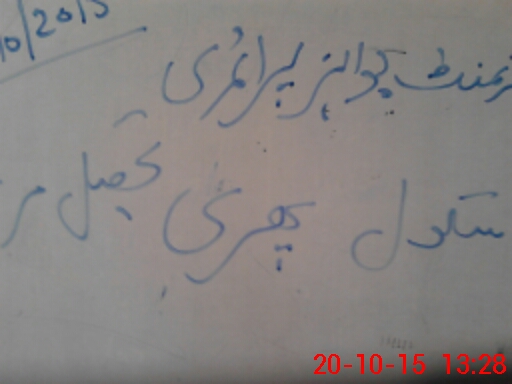 0/2015
رنمنٹ بوائز پرائمری
سکول پھری تحصیل مر
20-10-15 13:28